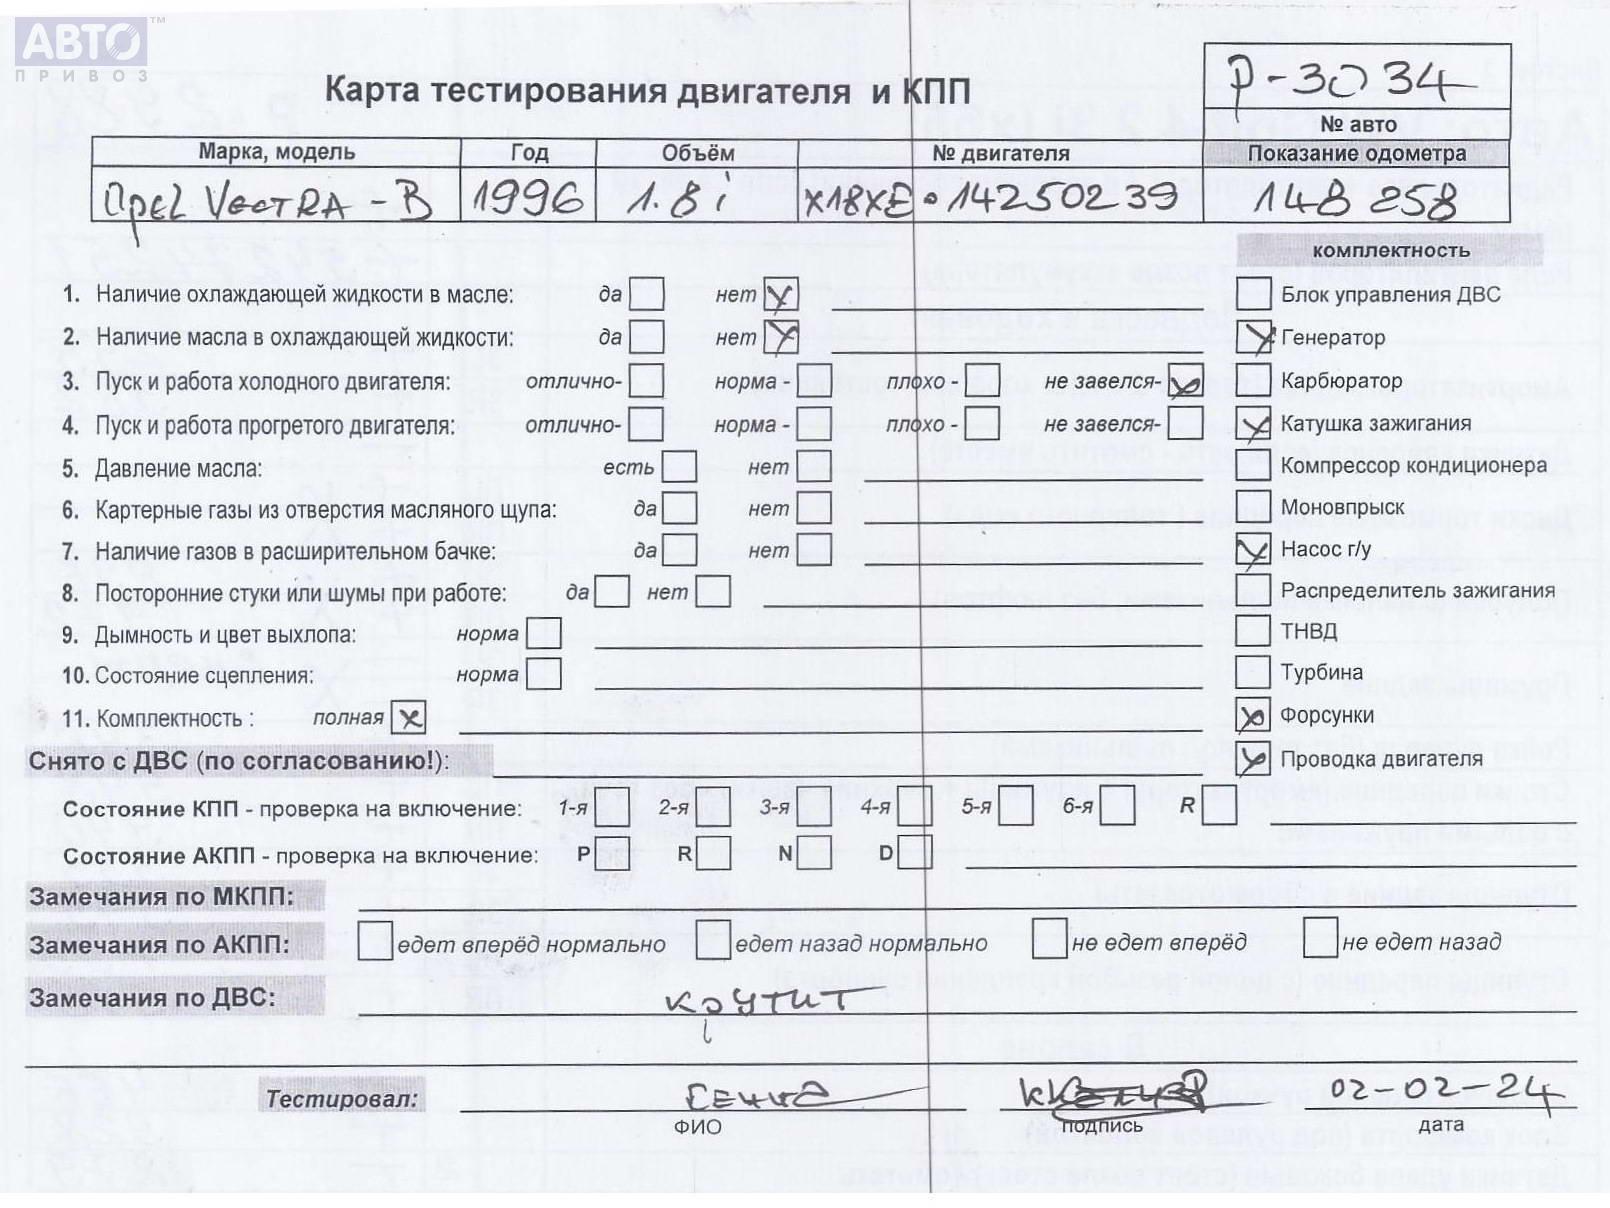 АВТО™
ПРИВОЗ
Карта тестирования двигателя и КПП
P-3034
№ авто
Марка, модель Год Объём № двигателя Показание одометра
Opel Vectra - B 1996 1.8i x18xE • 14250239 148 858
комплектность
1. Наличие охлаждающей жидкости в масле: да нет Блок управления ДВС
2. Наличие масла в охлаждающей жидкости: да нет Генератор
3. Пуск и работа холодного двигателя: отлично- норма плохо не завелся- Карбюратор
4. Пуск и работа прогретого двигателя: отлично- норма - плохо - не завелся- Катушка зажигания
5. Давление масла: есть нет Компрессор кондиционера
6. Картерные газы из отверстия масляного щупа: да нет Моновпрыск
7. Наличие газов в расширительном бачке: да нет Насос г/у
8. Посторонние стуки или шумы при работе: да нет Распределитель зажигания
9. Дымность и цвет выхлопа: норма ТНВД
10. Состояние сцепления: норма Турбина
11. Комплектность : полная Форсунки
Снято с ДВС (по согласованию!): Проводка двигателя
Состояние КПП - проверка на включение: 1-я 2-я 3-я 4-я 5-я 6-я R
Состояние АКПП - проверка на включение: P R N D
Замечания по МКПП:
Замечания по АКПП: едет вперёд нормально едет назад нормально не едет вперёд не едет назад
Замечания по ДВС: крутит
Тестировал: 02-02-24
ФИО подпись дата